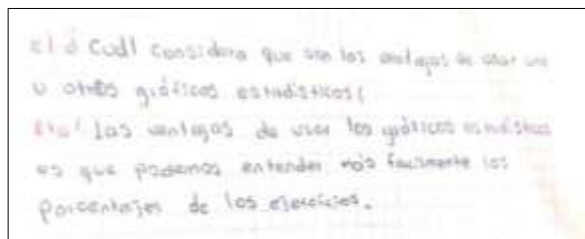 c) ¿ Cuál considera que son las ventajas de usar uno
u otros gráficos estadísticos?
Rta: Las ventajas de usar los gráficos estadísticos
es que podemos entender más facilmente los
porcentajes de los ejercicios.